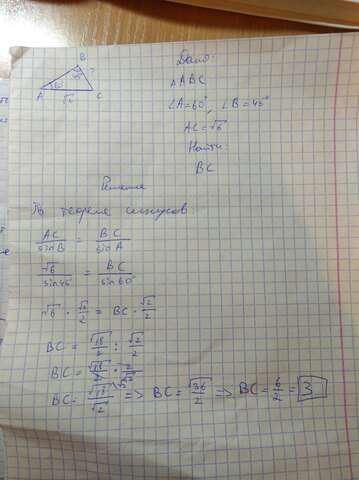 B
45°
?
A
60°
√6
C
Дано:
△ABC
∠A=60°, ∠B=45°
AC=√6
Найти:
BC
Решение
По теореме синусов:
AC/sin B = BC/sin A
√6/sin 45° = BC/sin 60°
√6 · √3/2 = BC · √2/2
BC = √18/2 : √2/2
BC = √18/2 · 2/√2
BC = √18/√2 => BC = √36/2 => BC = 6/2 = 3